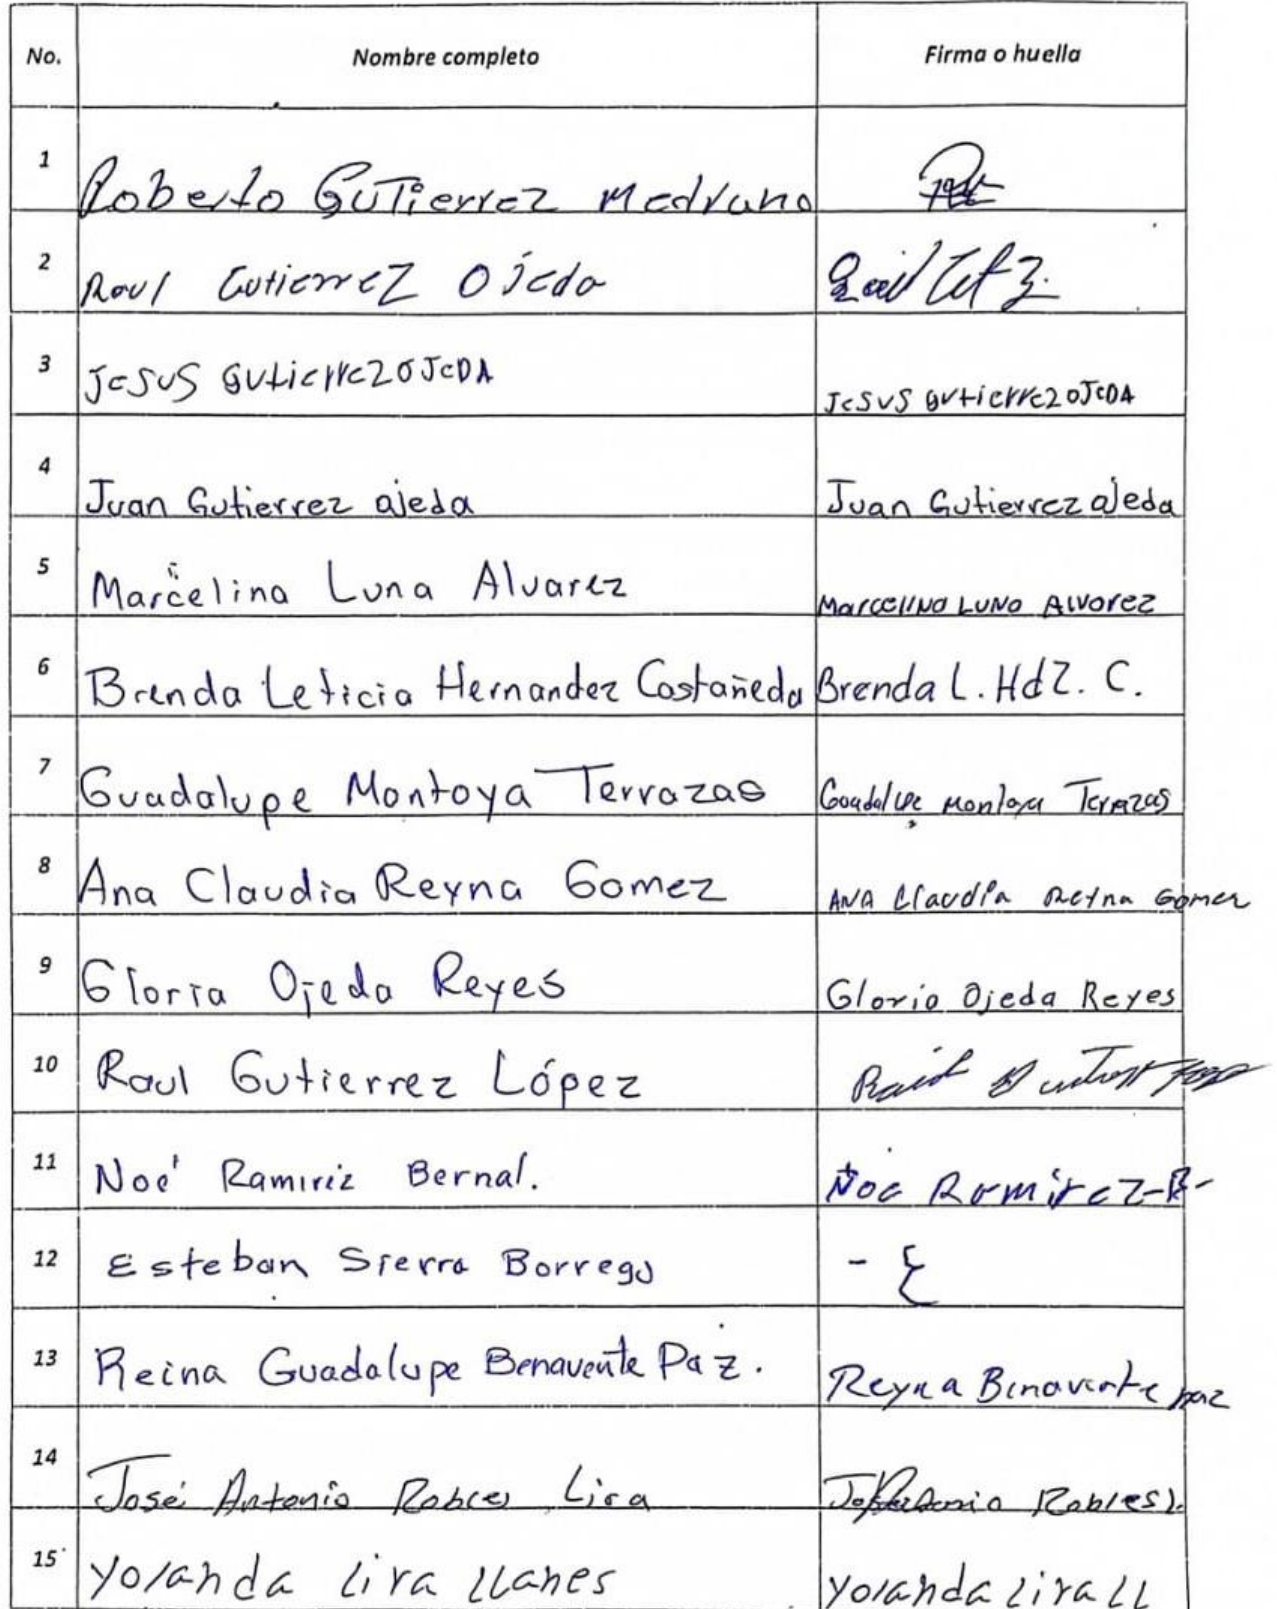 No. Nombre completo Firma o huella
1 Roberto Gutierrez Medrano
2 Raul Gutierrez Ojeda
3 Jesus gutierrez oJeDA Jesus gutierrez oJeDA
4 Juan Gutierrez ojeda Juan Gutierrez ojeda
5 Marcelina Luna Alvarez Marcelina Luna Alvarez
6 Brenda Leticia Hernandez Costañeda Brenda L. Hdz. C.
7 Guadalupe Montoya Terrazas Guadalupe Montoya Terrazas
8 Ana Claudia Reyna Gomez ANA Claudia Reyna Gomez
9 Gloria Ojeda Reyes Gloria Ojeda Reyes
10 Raul Gutierrez López
11 Noé Ramiriz Bernal. Noe Ramirez-B-
12 Esteban Sierra Borrego
13 Reina Guadalupe Benavente Paz. Reyna Benavente paz
14 José Antonio Robles Lira Robles L.
15 Yolanda Lira LLanes Yolanda Lira LL